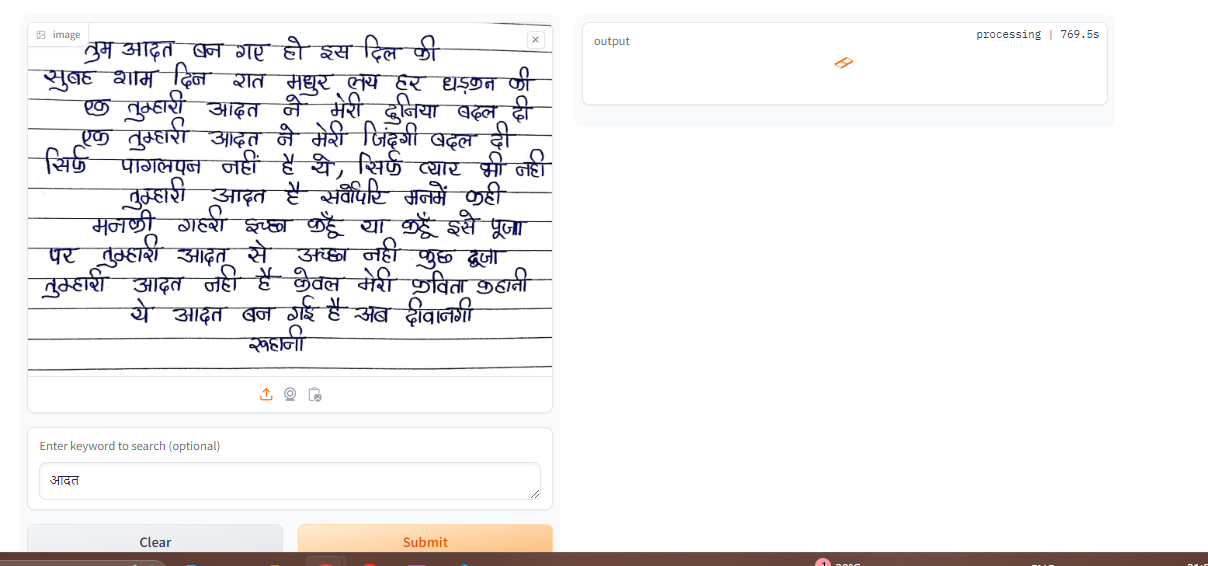 image
तुम आदत बन गए हो इस दिल की
सुबह शाम दिन रात मधुर लय हर धड़कन की
एक तुम्हारी आदत ने मेरी दुनिया बदल दी
एक तुम्हारी आदत ने मेरी जिंदगी बदल दी
सिर्फ पागलपन नहीं है ये, सिर्फ प्यार भी नही
तुम्हारी आदत है सर्वोपरि मनमें कही
मनकी गहरी इच्छा कहूँ या कहूँ इसे पूजा
पर तुम्हारी आदत से अच्छा नही कुछ दूजा
तुम्हारी आदत नही है केवल मेरी कविता कहानी
ये आदत बन गई है अब दीवानगी
रूहानी
Enter keyword to search (optional)
आदत
Clear Submit
output
processing | 769.5s